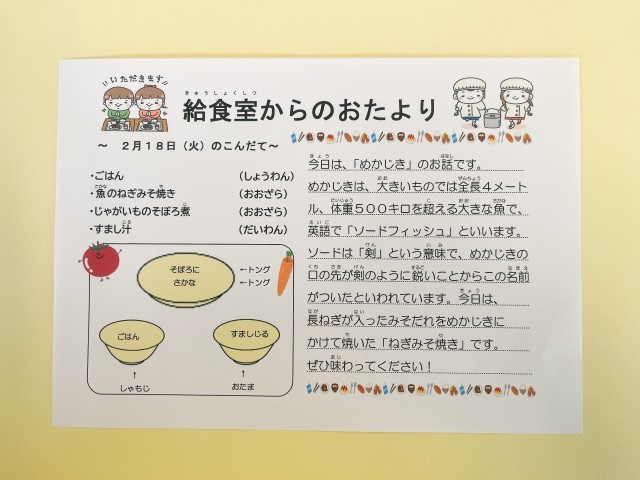 いただきます
給食室からのおたより
きゅうしょくしつ
～ 2月18日（火）のこんだて～
・ごはん （しょうわん）
・魚のねぎみそ焼き （おおざら）
・じゃがいものそぼろ煮 （おおざら）
・すまし汁 （だいわん）
そぼろに
さかな
←トング
←トング
ごはん
すましじる
↑
しゃもじ
↑
おたま
今日は、「めかじき」のお話です。
めかじきは、大きいものでは全長4メート
ル、体重500キロを超える大きな魚で、
英語で「ソードフィッシュ」といいます。
ソードは「剣」という意味で、めかじきの
口の先が剣のように鋭いことからこの名前
がついたといわれています。今日は、
長ねぎが入ったみそだれをめかじきに
かけて焼いた「ねぎみそ焼き」です。
ぜひ味わってください！